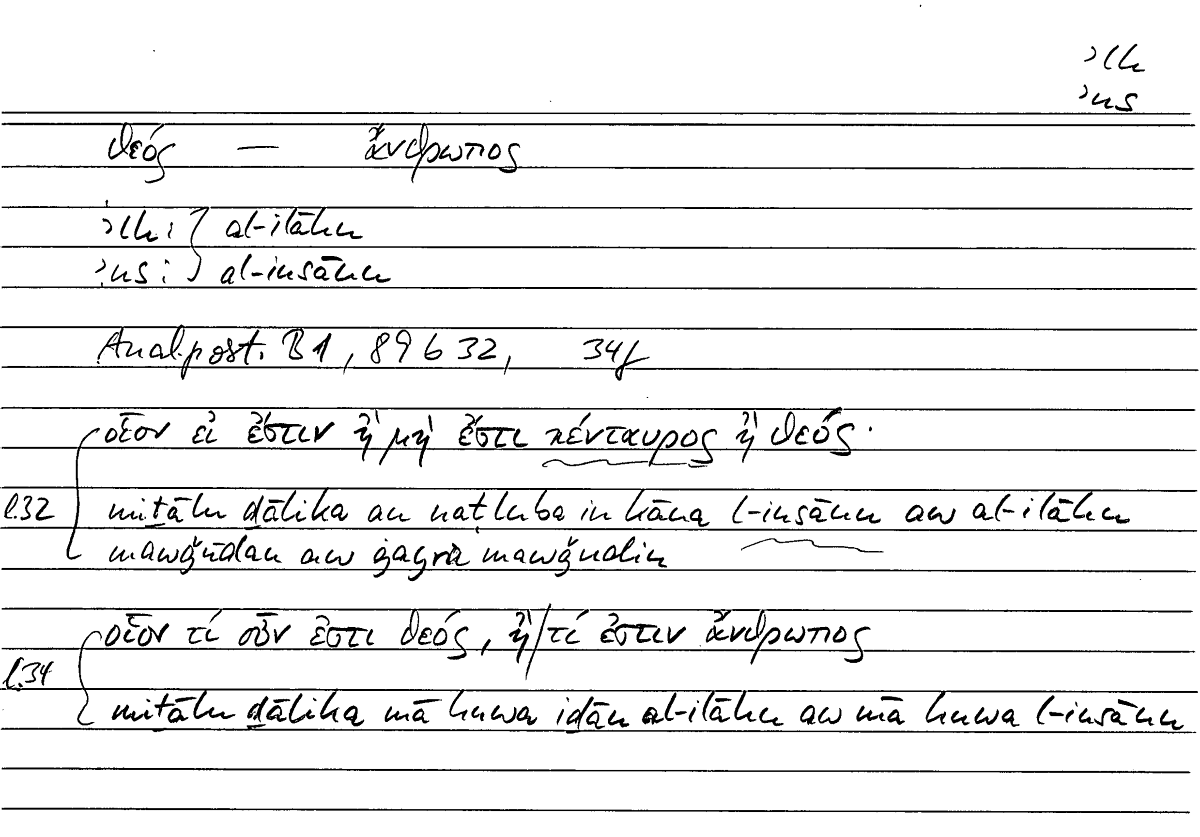 ʾlh
ʾns
θεός — ἄνθρωπος
ʾlh: } al-ilāhu
ʾns: } al-insānu
Anal. post. B1, 89 b 32, 34f
οἷον εἰ ἔστιν ἢ μὴ ἔστι κένταυρος ἢ θεός·
l.32 miṯālu ḏālika an naṭluba in kāna l-insānu aw al-ilāhu
mawǧūdan aw ġayra mawǧudin
οἷον τί οὖν ἐστι θεός, ἢ/τί ἐστιν ἄνθρωπος
l.34
miṯālu ḏālika mā huwa iḏān al-ilāhu aw mā huwa l-insānu